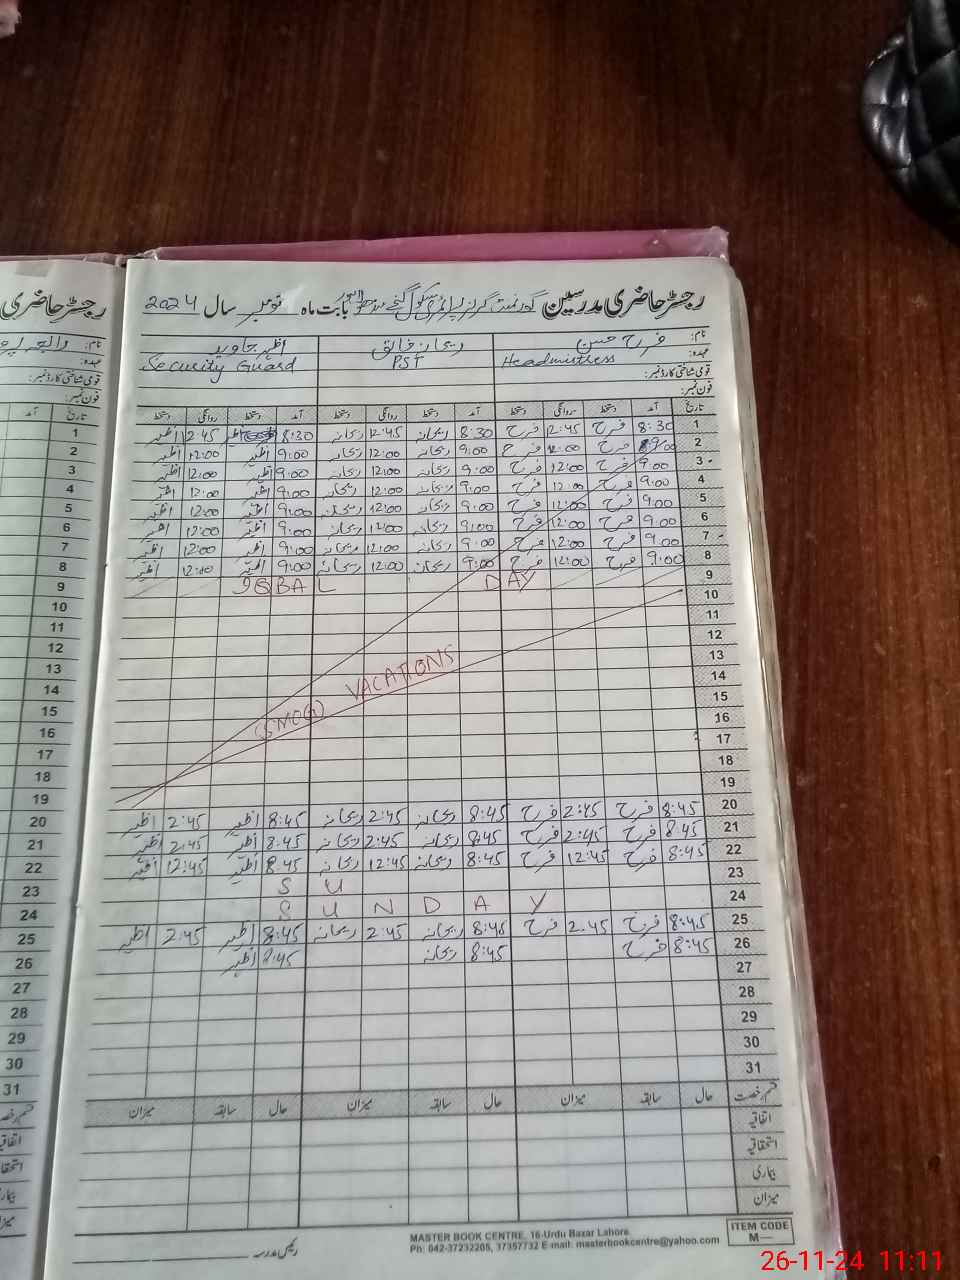 رجسٹر حاضری مدرسین گورنمنٹ گرلز پرائمری سکول بابت ماہ نومبر سال 2024
نام: فرح حسن ریحانہ خالق اظہر جاوید
عہدہ: Headmistress PST Security Guard
قومی شناختی کارڈ نمبر:
فون نمبر:
تاریخ آمد دستخط روانگی دستخط آمد دستخط روانگی دستخط آمد دستخط روانگی دستخط
1 8:30 فرح 12:45 فرح 8:30 ریحانہ 12:45 ریحانہ 8:30 اظہر 12:45 اظہر
2 9:00 فرح 12:00 فرح 9:00 ریحانہ 12:00 ریحانہ 9:00 اظہر 12:00 اظہر
3 9:00 فرح 12:00 فرح 9:00 ریحانہ 12:00 ریحانہ 9:00 اظہر 12:00 اظہر
4 9:00 فرح 12:00 فرح 9:00 ریحانہ 12:00 ریحانہ 9:00 اظہر 12:00 اظہر
5 9:00 فرح 12:00 فرح 9:00 ریحانہ 12:00 ریحانہ 9:00 اظہر 12:00 اظہر
6 9:00 فرح 12:00 فرح 9:00 ریحانہ 12:00 ریحانہ 9:00 اظہر 12:00 اظہر
7 9:00 فرح 12:00 فرح 9:00 ریحانہ 12:00 ریحانہ 9:00 اظہر 12:00 اظہر
8 9:00 فرح 12:00 فرح 9:00 ریحانہ 12:00 ریحانہ 9:00 اظہر 12:00 اظہر
9 IQBAL DAY
10
11
12
13 SMOG VACATIONS
14
15
16
17
18
19
20 8:45 فرح 2:45 فرح 8:45 ریحانہ 2:45 ریحانہ 8:45 اظہر 2:45 اظہر
21 8:45 فرح 2:45 فرح 8:45 ریحانہ 2:45 ریحانہ 8:45 اظہر 2:45 اظہر
22 8:45 فرح 12:45 فرح 8:45 ریحانہ 12:45 ریحانہ 8:45 اظہر 12:45 اظہر
23 S U
24 S U N D A Y
25 8:45 فرح 2:45 فرح 8:45 ریحانہ 2:45 ریحانہ 8:45 اظہر 2:45 اظہر
26 8:45 فرح 8:45 ریحانہ 8:45 اظہر
27
28
29
30
31
قسم رخصت حال سابقہ میزان حال سابقہ میزان حال سابقہ میزان
اتفاقیہ
استحقاقیہ
بیماری
میزان
رئیس مدرسہ
MASTER BOOK CENTRE, 16-Urdu Bazar Lahore.
Ph: 042-37232205, 37357732 E-mail: masterbookcentre@yahoo.com
ITEM CODE
M—
26-11-24 11:11